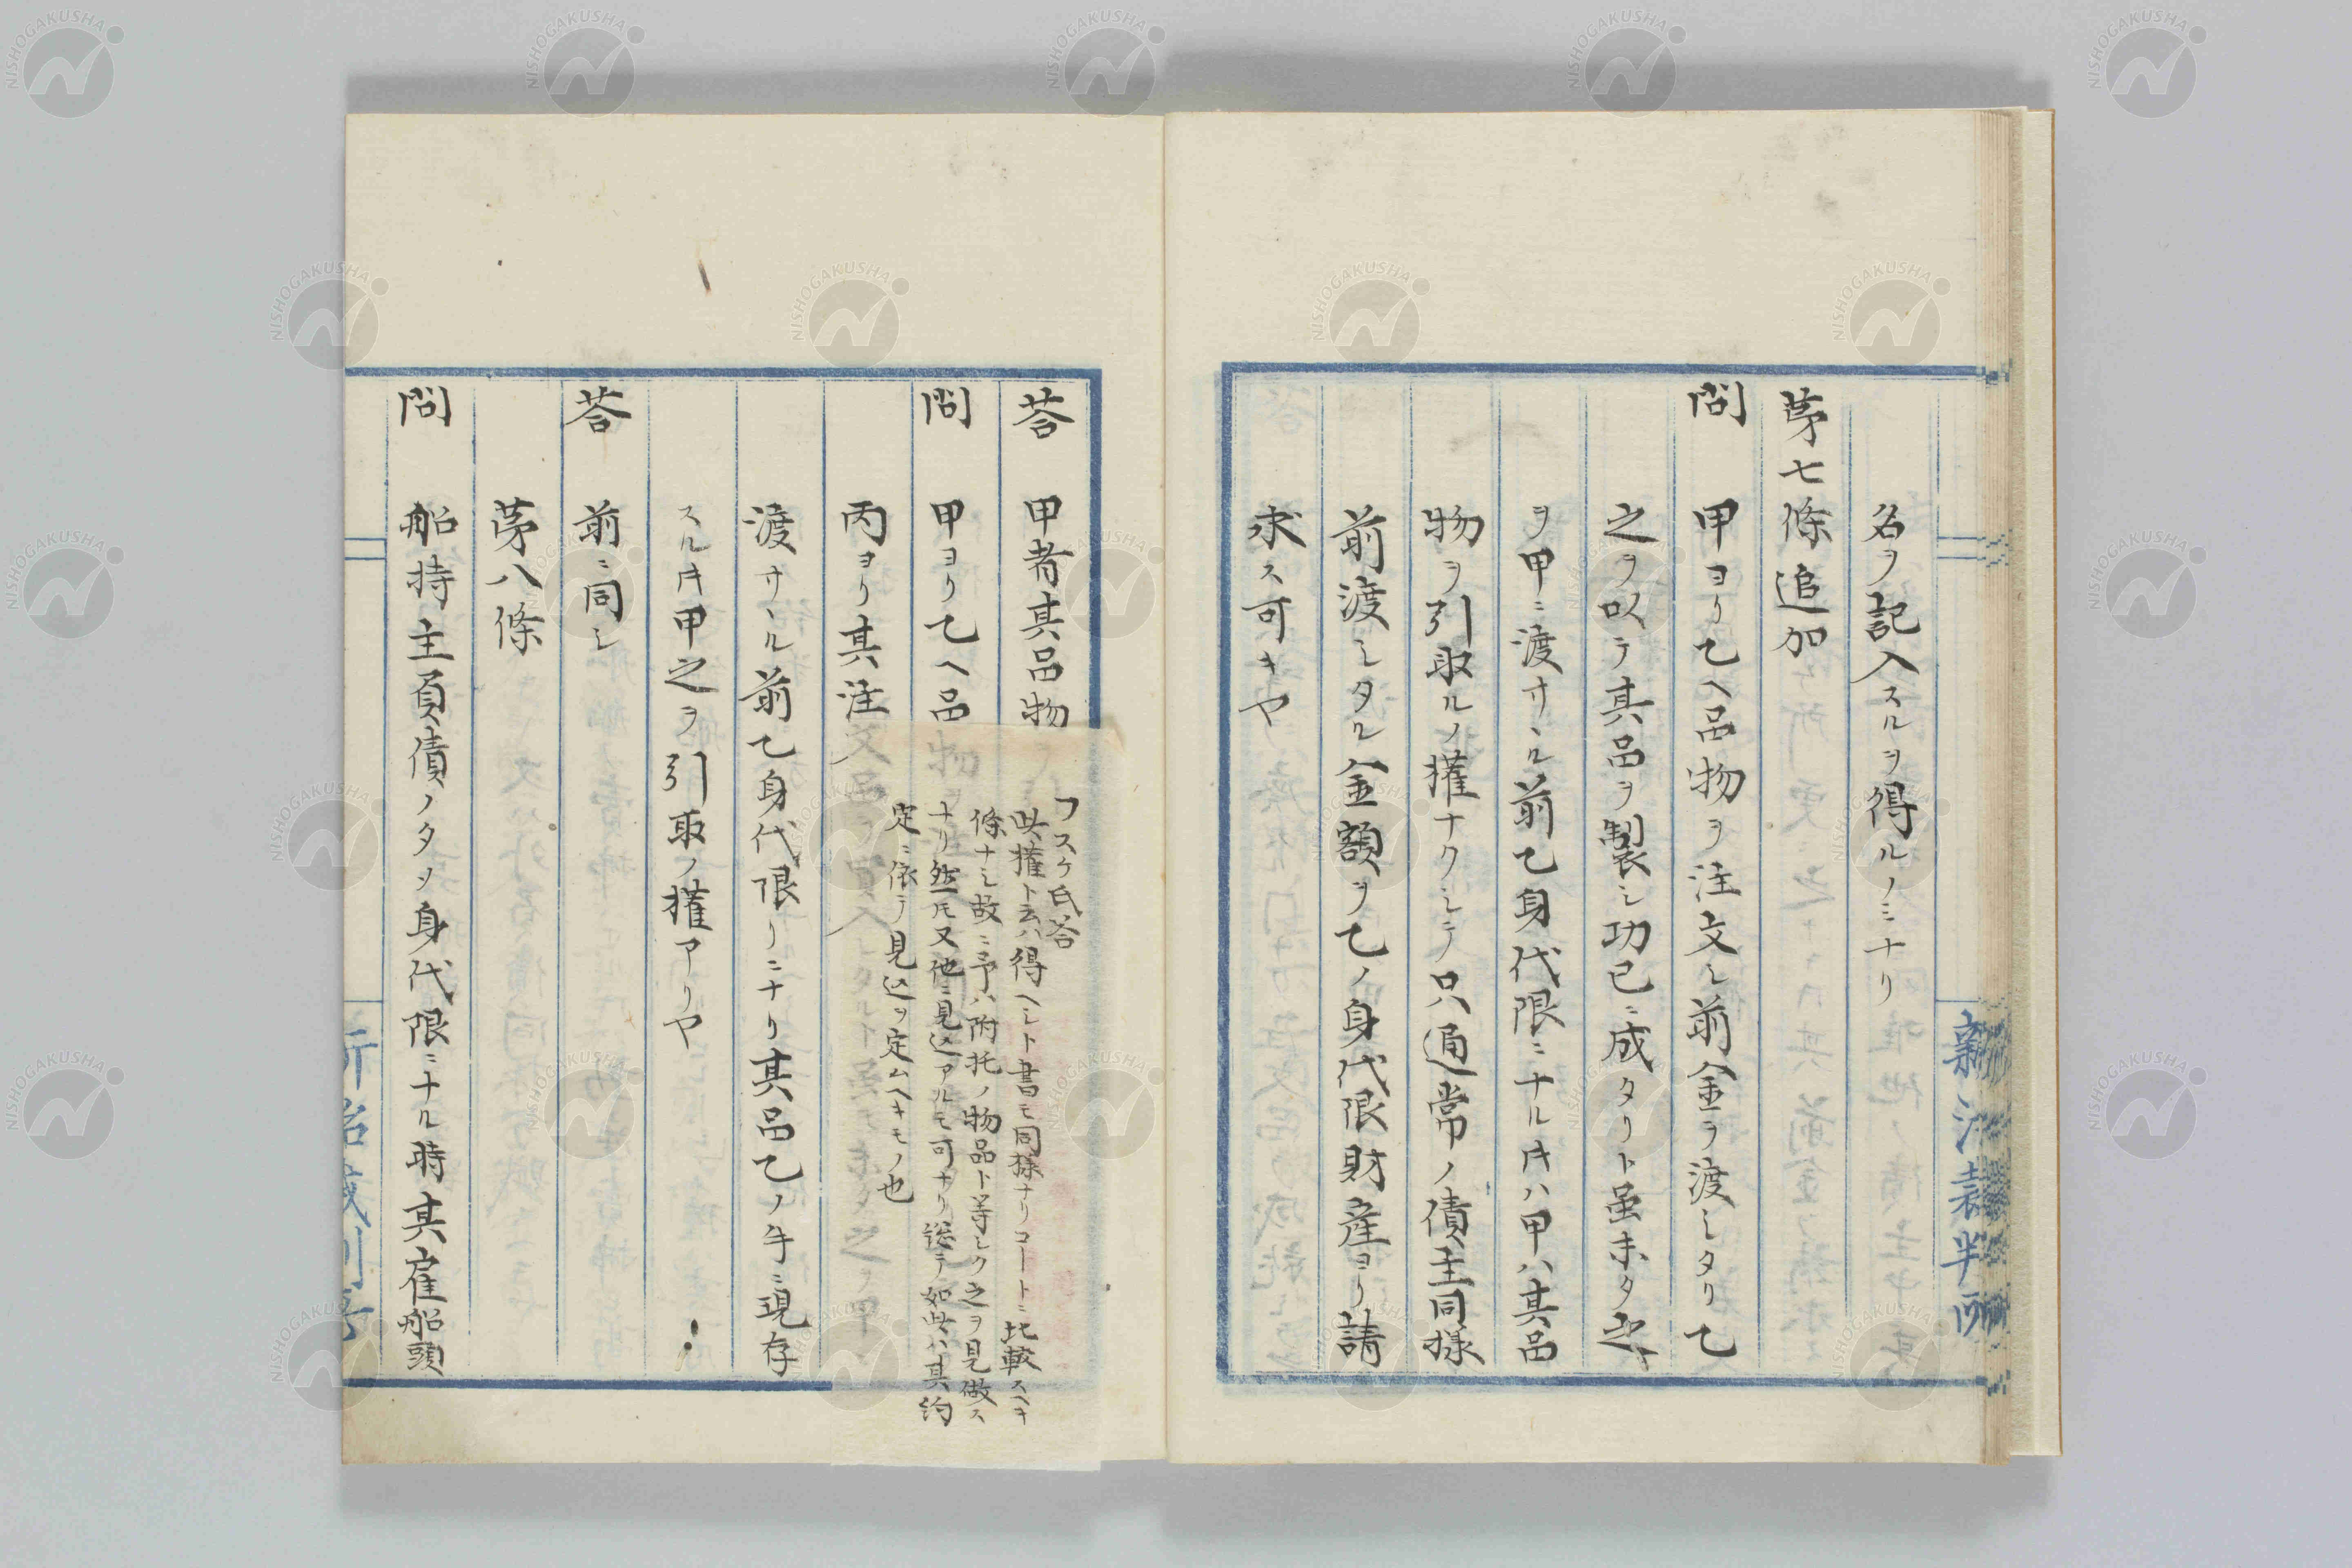 名ヲ記入スルヲ得ルノミナリ
第七條追加
問 甲ヨリ乙ヘ品物ヲ注文シ前金ヲ渡シタリ乙
之ヲ以テ其品ヲ製シ功已ニ成タリト虽未タ之
ヲ甲ニ渡サヽル前乙身代限ニナル片ハ甲ハ其品
物ヲ引取ルノ權ナクシテ只通常ノ債主同様
前渡シタル金額ヲ乙ノ身代限財産ヨリ請
求ス可キヤ
答 甲者其品物
問 甲ヨリ乙ヘ品物
丙ヨリ其注文品ヲ買入 虽モ未タ之ヲ甲
フスケ氏答
此權ト云ハ得ヘシト書モ同様ナリコートニ比較スヘキ
條ナシ故ニ予ハ附托ノ物品ト等シク之ヲ見做ス
ナリ然圧又他ニ見込アルモ可ナリ総テ如此ハ其約
定ニ依テ見込ヲ定ムヘキモノ也
渡サヽル前乙身代限リニナリ其品乙ノ手ニ現存
スル片甲之ヲ引取ノ權アリヤ
答 前ニ同シ
第八條
問 船持主負債ノタメ身代限ニナル時其雇船頭